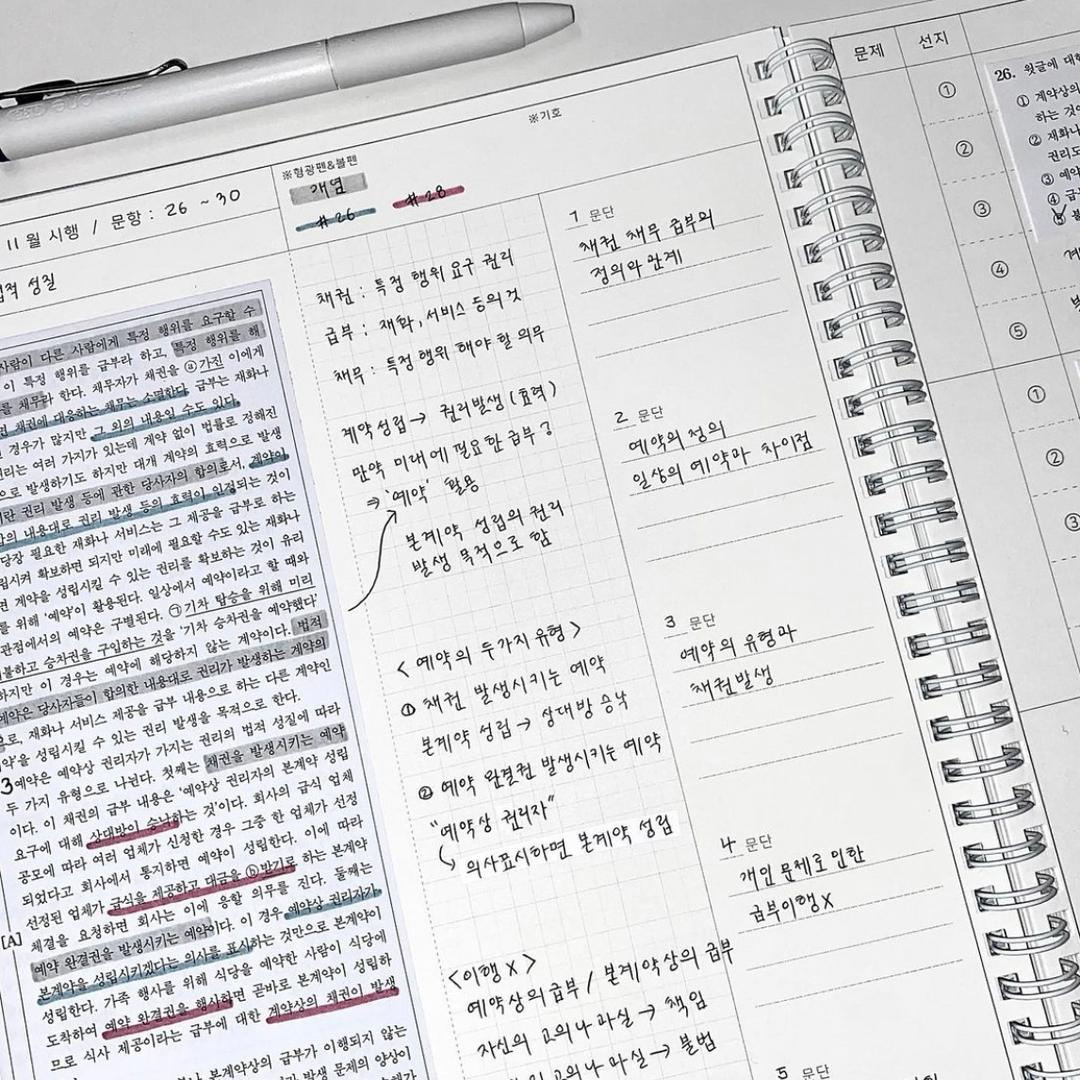 ※기호
※형광펜&볼펜
개념
#26
#28
11월 시행 / 문항 : 26 ~ 30
성질
사람이 다른 사람에게 특정 행위를 요구할 수
이 특정 행위를 급부라 하고, 특정 행위를 해
를 채무라 한다. 채무자가 채권을 ⓐ가진 이에게
면 채권에 대응하는 채무는 소멸한다. 급부는 재화나
경우가 많지만 그 외의 내용일 수도 있다.
리는 여러 가지가 있는데 계약 없이 법률로 정해진
으로 발생하기도 하지만 대개 계약의 효력으로 발생
이란 권리 발생 등에 관한 당사자의 합의로서, 계약이
의 내용대로 권리 발생 등의 효력이 인정되는 것이
당장 필요한 재화나 서비스는 그 제공을 급부로 하는
립시켜 확보하면 되지만 미래에 필요할 수도 있는 재화나
면 계약을 성립시킬 수 있는 권리를 확보하는 것이 유리
를 위해 ‘예약’이 활용된다. 일상에서 예약이라고 할 때와
관점에서의 예약은 구별된다. ㉠기차 탑승을 위해 미리
불하고 승차권을 구입하는 것을 ‘기차 승차권을 예약했다’
하지만 이 경우는 예약에 해당하지 않는 계약이다. 법적
예약은 당사자들이 합의한 내용대로 권리가 발생하는 계약의
로, 재화나 서비스 제공을 급부 내용으로 하는 다른 계약인
약’을 성립시킬 수 있는 권리 발생을 목적으로 한다.
3 예약은 예약상 권리자가 가지는 권리의 법적 성질에 따라
두 가지 유형으로 나뉜다. 첫째는 채권을 발생시키는 예약
이다. 이 채권의 급부 내용은 ‘예약상 권리자의 본계약 성립
요구에 대해 상대방이 승낙하는 것’이다. 회사의 급식 업체
공모에 따라 여러 업체가 신청한 경우 그중 한 업체가 선정
되었다고 회사에서 통지하면 예약이 성립한다. 이에 따라
선정된 업체가 급식을 제공하고 대금을 ⓑ받기로 하는 본계약
[A] 체결을 요청하면 회사는 이에 응할 의무를 진다. 둘째는
예약 완결권을 발생시키는 예약이다. 이 경우 예약상 권리자가
본계약을 성립시키겠다는 의사를 표시하는 것만으로 본계약이
성립한다. 가족 행사를 위해 식당을 예약한 사람이 식당에
도착하여 예약 완결권을 행사하면 곧바로 본계약이 성립하
므로 식사 제공이라는 급부에 대한 계약상의 채권이 발생
본계약상의 급부가 이행되지 않는
발생 문제의 양상이
채권 : 특정 행위 요구 권리
급부 : 재화, 서비스 등의 것
채무 : 특정 행위 해야 할 의무
계약성립 → 권리발생 (효력)
만약 미래에 필요한 급부?
⇒ '예약' 활용
본계약 성립의 권리
발생 목적으로 함
< 예약의 두가지 유형 >
① 채권 발생시키는 예약
본계약 성립 → 상대방 승낙
② 예약 완결권 발생시키는 예약
"예약상 권리자"
↳ 의사표시하면 본계약 성립
<이행 X>
예약상의 급부 / 본계약상의 급부
자신의 고의나 과실 → 책임
고의나 과실 → 불법
1 문단
채권 채무 급부의
정의와 관계
2 문단
예약의 정의
일상의 예약과 차이점
3 문단
예약의 유형과
채권발생
4 문단
개인 문제로 인한
급부이행X
5 문단
문제
선지
①
②
③
④
⑤
①
②
③
26. 윗글에 대한
① 계약상의
하는 것이
② 재화나
권리도
③ 예약
④ 급